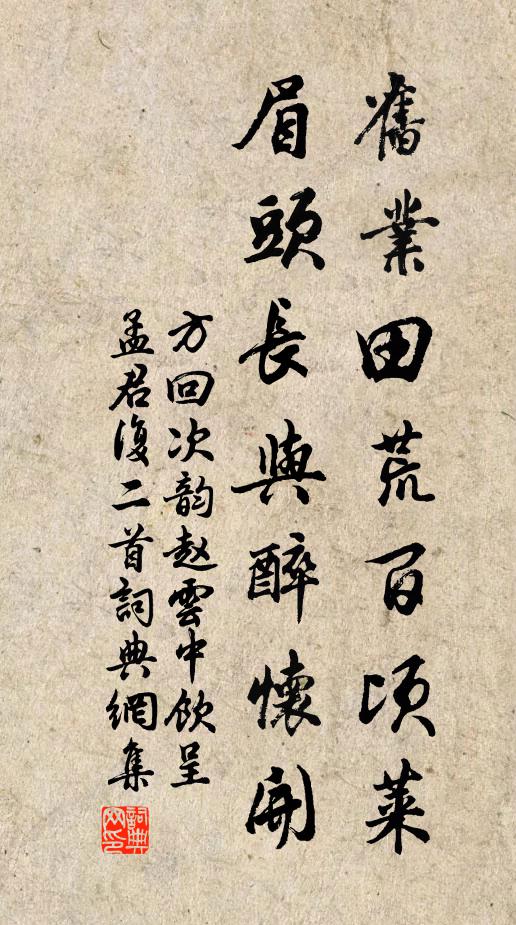 舊業田荒百頃萊
眉頭長與醉懷開
方回次韵赵雲中飲呈
孟君復二首詞典網集
詞典
网印